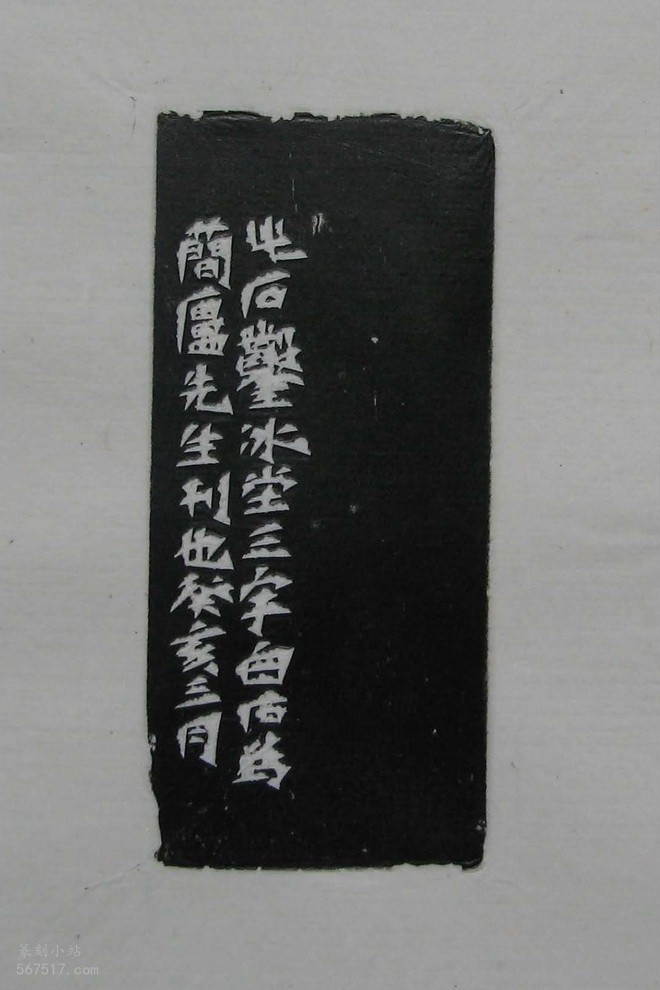 此石鑿冰堂三字白石為
蕳廬先生刊也癸亥三月
篆刻小站
567517.com